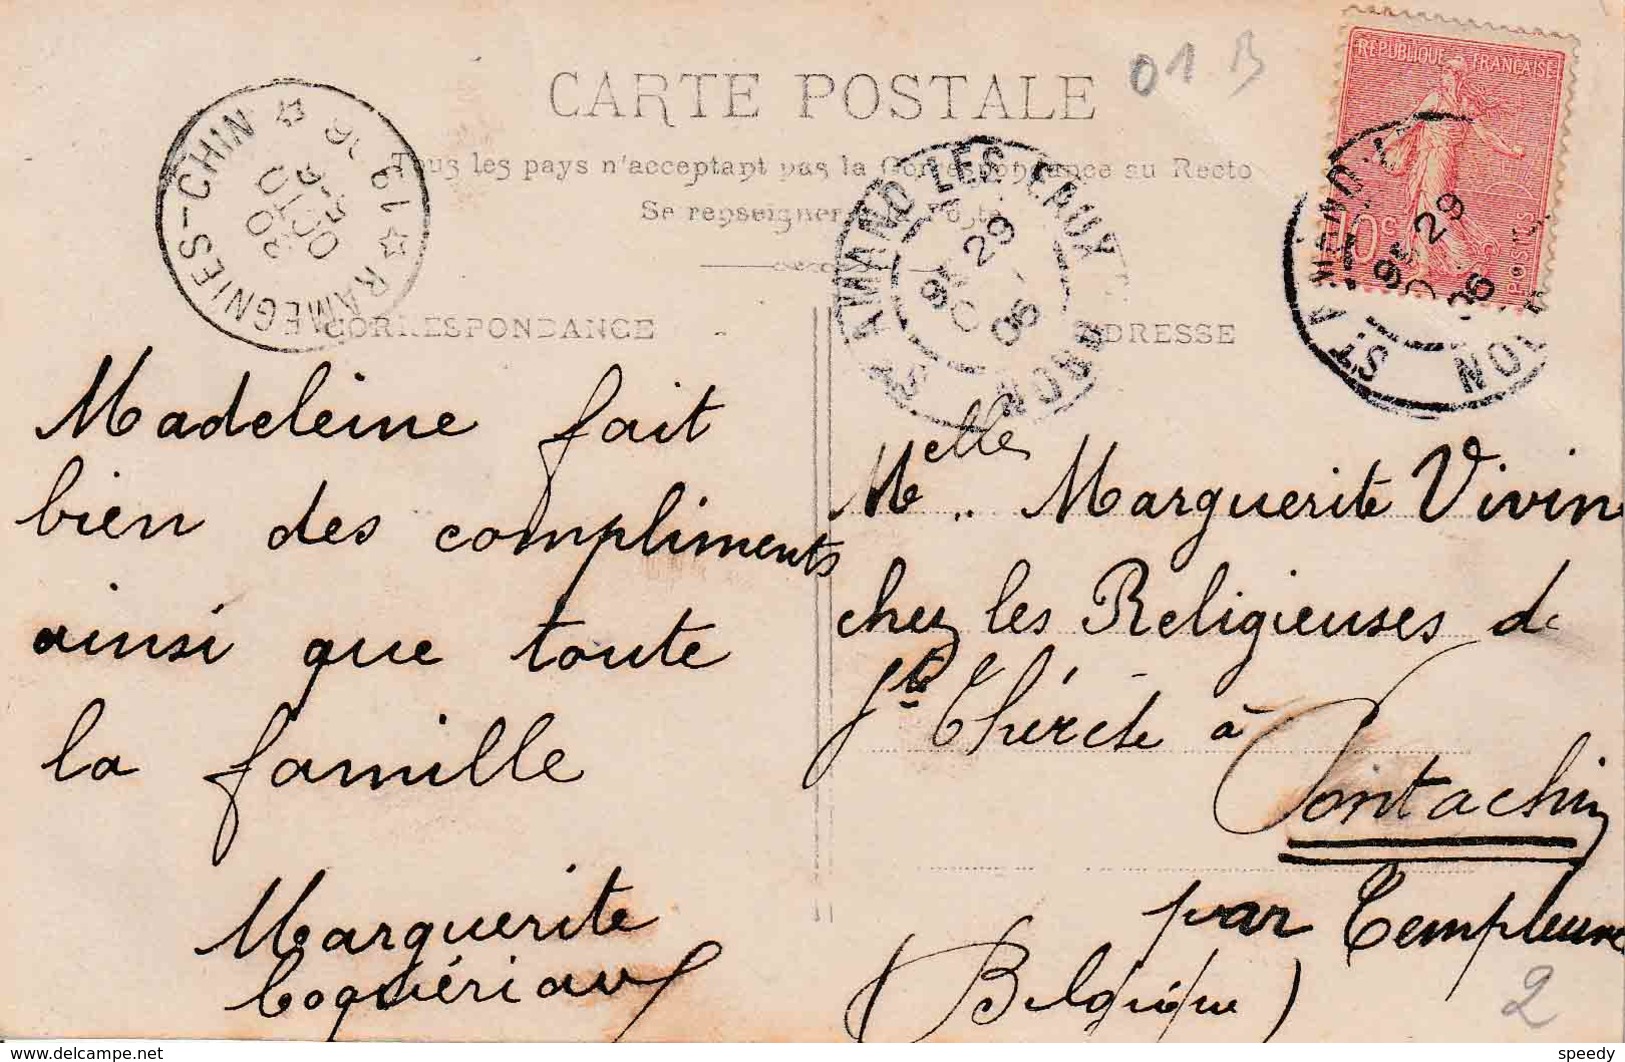 01 B
CARTE POSTALE
Tous les pays n'acceptant pas la Correspondance au Recto
Se renseigner à la Poste
REPUBLIQUE FRANÇAISE
10c
POSTES
RAMEGNIES-CHIN
20
OCT
ST AMAND LES EAUX
29
05
NORD
ST AMAND
29
NORD
CORRESPONDANCE
ADRESSE
Madeleine fait
bien des compliments
ainsi que toute
la famille
Marguerite
Coquériaux
Melle Marguerite Vivin
chez les Religieuses de
Ste Thérèse à
Pontachin
par Templeuve
(Belgique)
2
https://www.delcampe.net
speedy